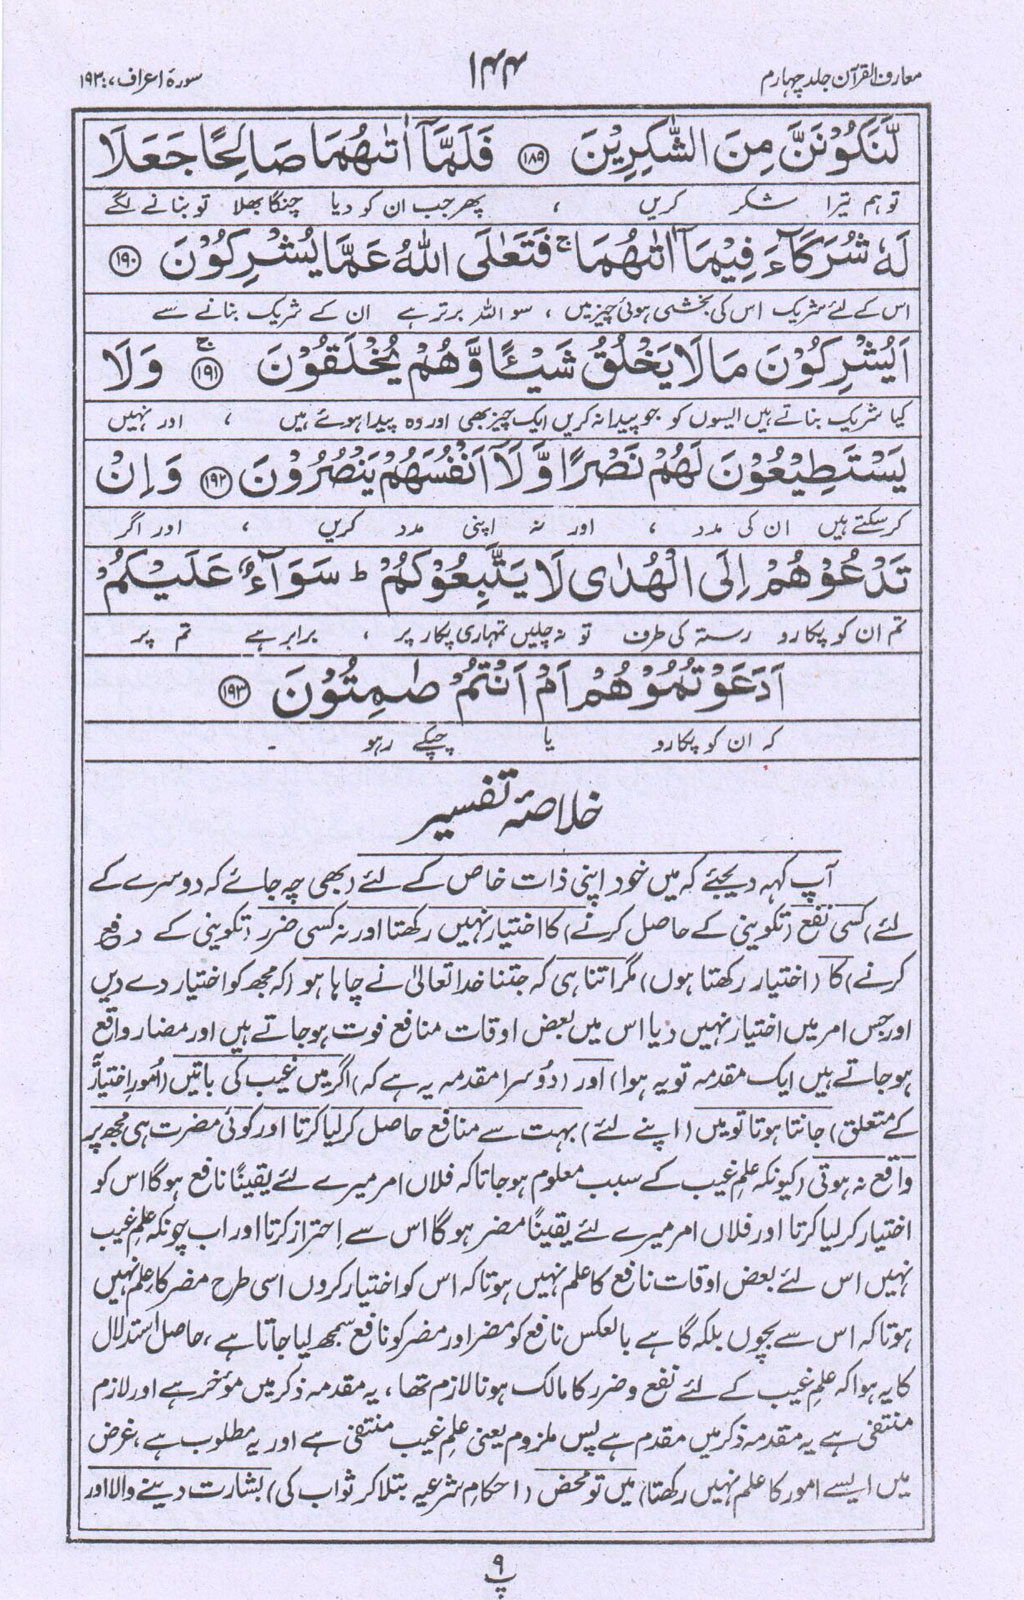 معارف القرآن جلد چہارم
۱۴۴
سورۂ اعراف ۷: ۱۹۳
لَّنَكُوْنَنَّ مِنَ الشّٰكِرِيْنَ ﴿۱۸۹﴾ فَلَمَّآ اٰتٰىهُمَا صَالِحًا جَعَلَا
تو ہم تیرا شکر کریں ، پھر جب ان کو دیا چنگا بھلا تو بنانے لگے
لَهٗ شُرَكَآءَ فِيْمَآ اٰتٰىهُمَا ۚ فَتَعٰلَى اللّٰهُ عَمَّا يُشْرِكُوْنَ ﴿۱۹۰﴾
اس کے لئے شریک اس کی بخشی ہوئی چیز میں ، سو اللہ برتر ہے ان کے شریک بنانے سے
اَيُشْرِكُوْنَ مَا لَا يَخْلُقُ شَيْـًٔا وَّهُمْ يُخْلَقُوْنَ ﴿۱۹۱﴾ۚ وَلَا
کیا شریک بناتے ہیں ایسوں کو جو پیدا نہ کریں ایک چیز بھی اور وہ پیدا ہوئے ہیں ، اور نہیں
يَسْتَطِيْعُوْنَ لَهُمْ نَصْرًا وَّلَآ اَنْفُسَهُمْ يَنْصُرُوْنَ ﴿۱۹۲﴾ وَاِنْ
کرسکتے ہیں ان کی مدد ، اور نہ اپنی مدد کریں ، اور اگر
تَدْعُوْهُمْ اِلَى الْهُدٰى لَا يَتَّبِعُوْكُمْ ؕ سَوَآءٌ عَلَيْكُمْ
تم ان کو پکارو رستہ کی طرف تو نہ چلیں تمہاری پکار پر ، برابر ہے تم پر
اَدَعَوْتُمُوْهُمْ اَمْ اَنْتُمْ صٰمِتُوْنَ ﴿۱۹۳﴾
کہ ان کو پکارو یا چپکے رہو ۔
خلاصۂ تفسیر
آپ کہہ دیجئے کہ میں خود اپنی ذات خاص کے لئے (بھی چہ جائے کہ دوسرے کے
لئے) کسی نفع (تکوینی کے حاصل کرنے) کا اختیار نہیں رکھتا اور نہ کسی ضرر (تکوینی کے دفع
کرنے) کا (اختیار رکھتا ہوں) مگر اتنا ہی کہ جتنا خدا تعالیٰ نے چاہا ہو (کہ مجھ کو اختیار دے دیں
اور جس امر میں اختیار نہیں دیا اس میں بعض اوقات منافع فوت ہوجاتے ہیں اور مضار واقع
ہوجاتے ہیں ایک مقدمہ تو یہ ہوا) اور (دوسرا مقدمہ یہ ہے کہ) اگر میں غیب کی باتیں (امور اختیاریہ
کے متعلق) جانتا ہوتا تو میں (اپنے لئے) بہت سے منافع حاصل کرلیا کرتا اور کوئی مضرت ہی مجھ پر
واقع نہ ہوتی (کیونکہ علم غیب کے سبب معلوم ہوجاتا کہ فلاں امر میرے لئے یقیناً نافع ہوگا اس کو
اختیار کرلیا کرتا اور فلاں امر میرے لئے یقیناً مضر ہوگا اس سے احتراز کرتا اور اب چونکہ علم غیب
نہیں اس لئے بعض اوقات نافع کا علم نہیں ہوتا کہ اس کو اختیار کروں اسی طرح مضر کا علم نہیں
ہوتا کہ اس سے بچوں بلکہ گاہے بالعکس نافع کو مضر اور مضر کو نافع سمجھ لیا جاتا ہے، حاصل استدلال
کا یہ ہوا کہ علم غیب کے لئے نفع و ضرر کا مالک ہونا لازم تھا، یہ مقدمہ ذکر میں مؤخر ہے اور لازم
منتفی ہے یہ مقدمہ ذکر میں مقدم ہے پس ملزوم یعنی علم غیب منتفی ہے اور یہ مطلوب ہے، غرض
میں ایسے امور کا علم نہیں رکھتا) میں تو محض (احکام شرعیہ بتلا کر ثواب کی) بشارت دینے والا اور
۹
پ